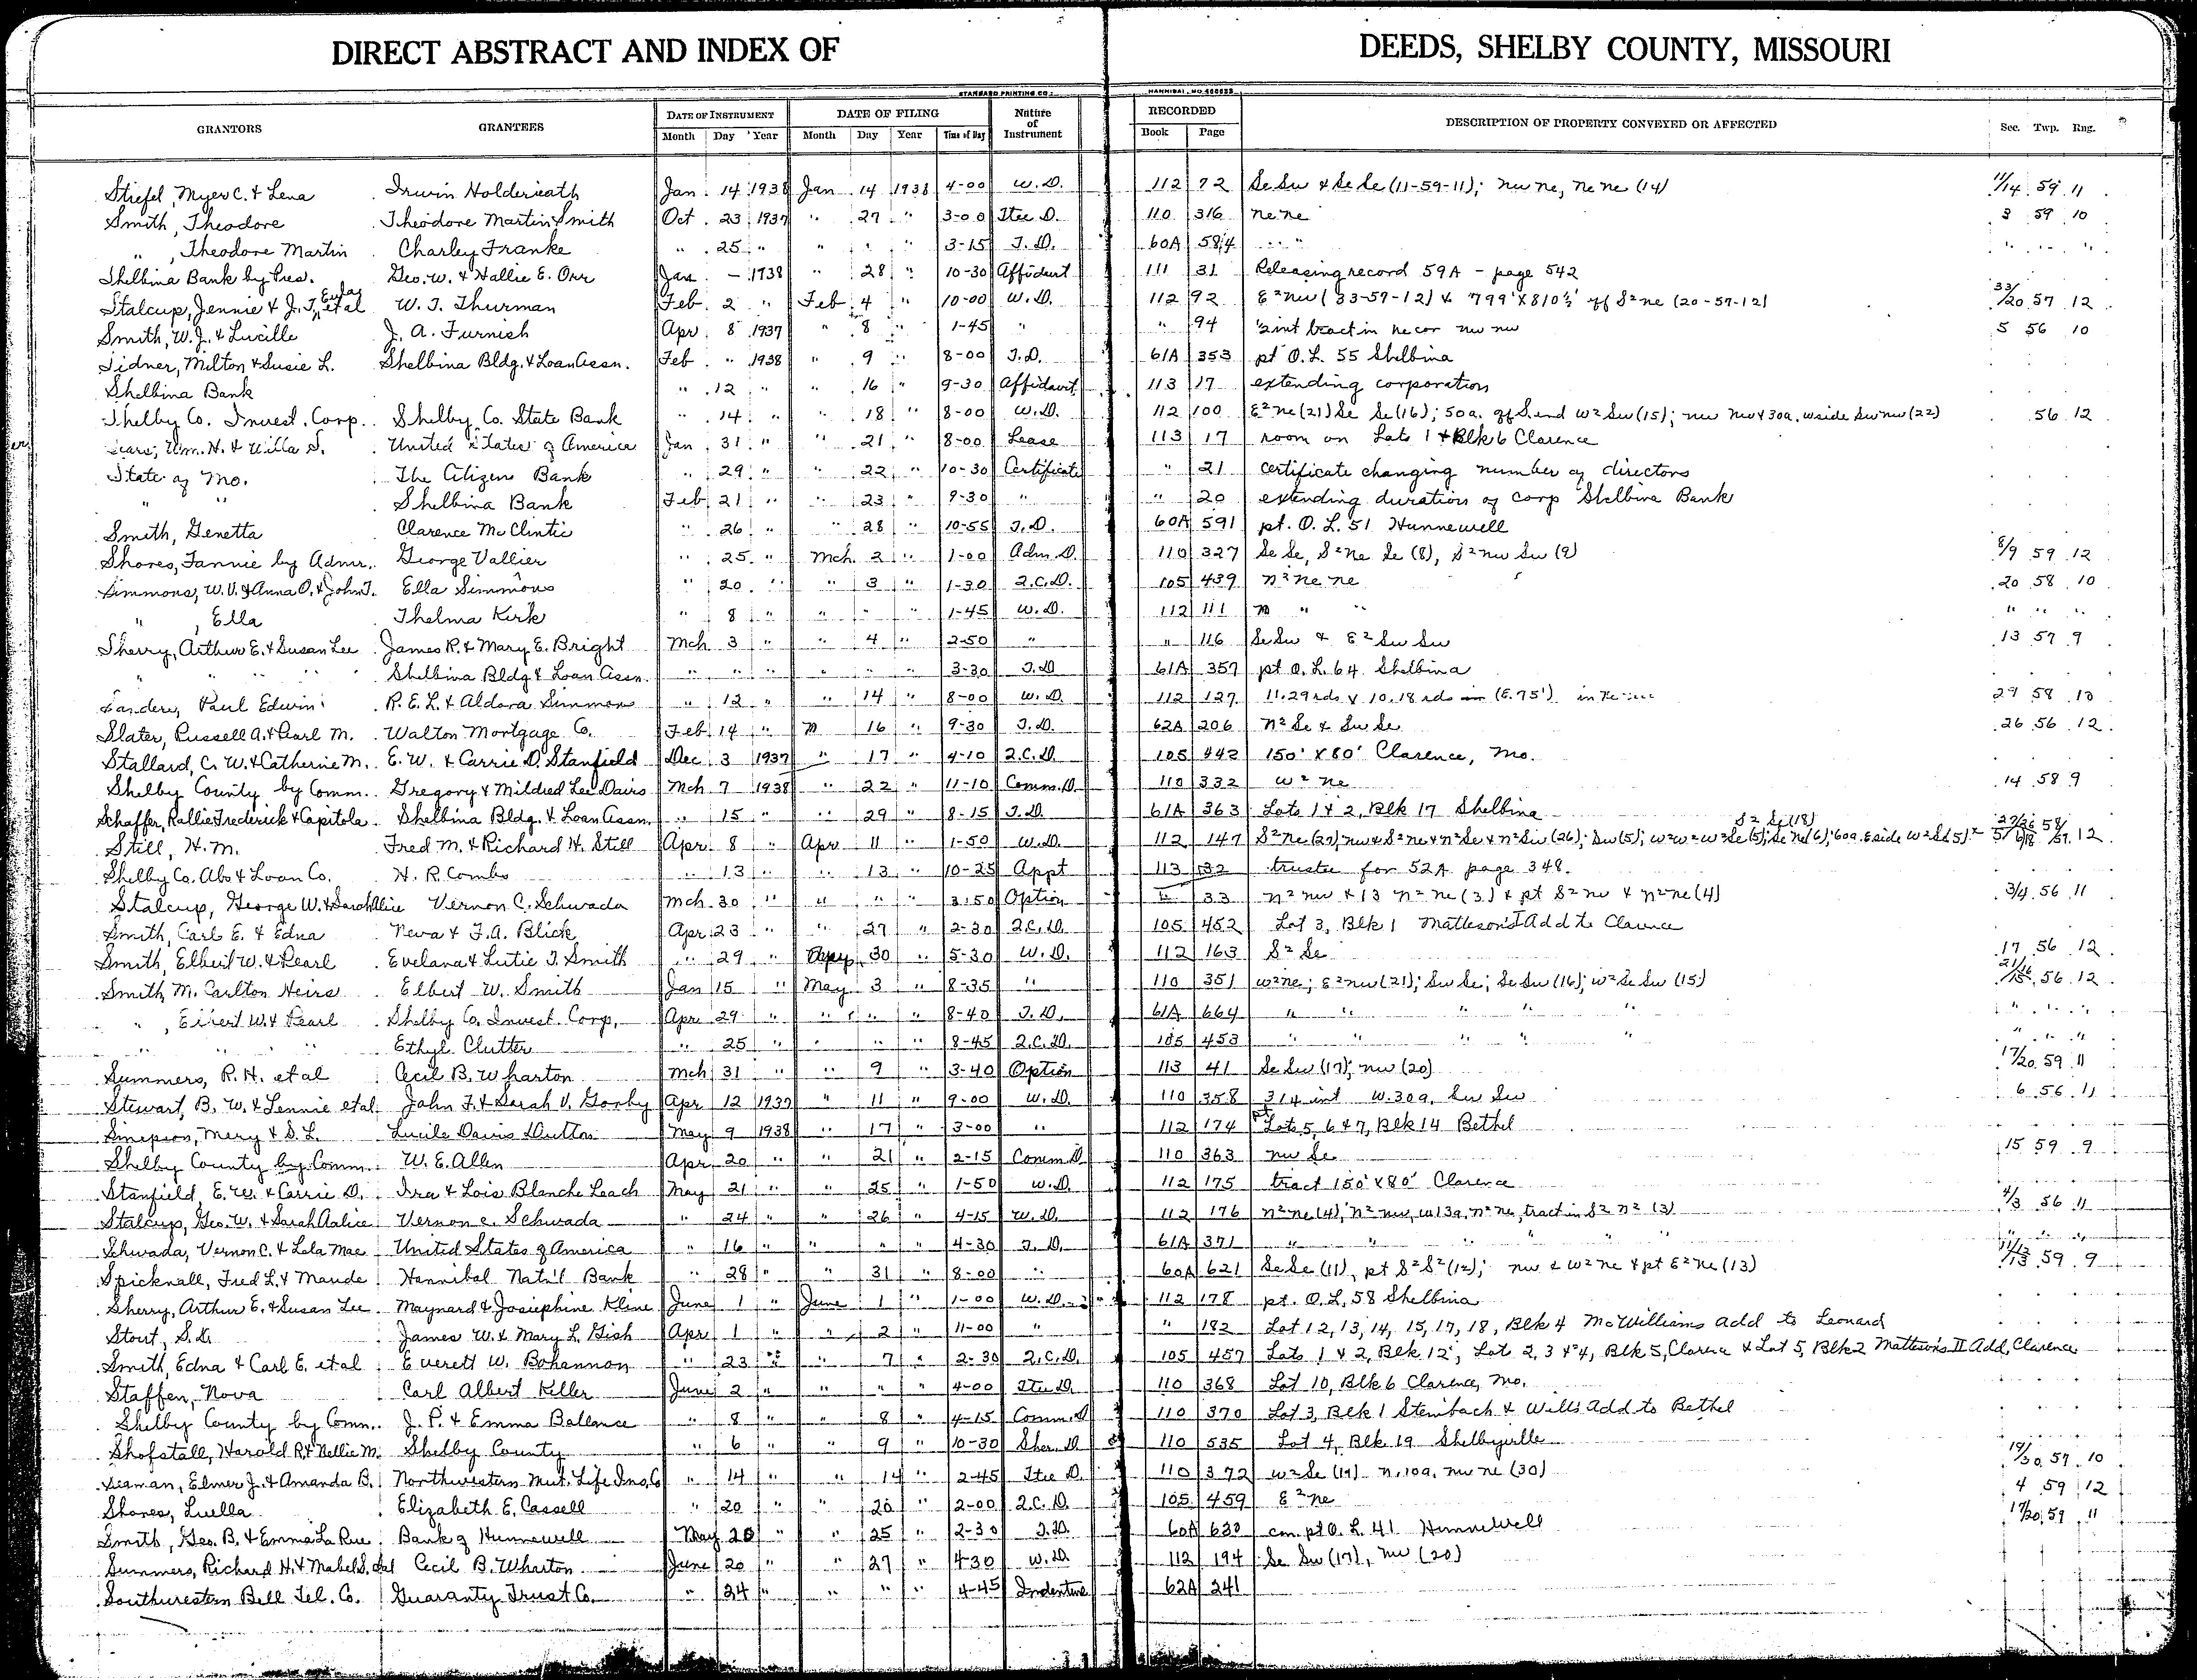 DIRECT ABSTRACT AND INDEX OF DEEDS, SHELBY COUNTY, MISSOURI
STANDARD PRINTING CO. HANNIBAL, MO.
GRANTORS GRANTEES DATE OF INSTRUMENT DATE OF FILING Nature of Instrument RECORDED DESCRIPTION OF PROPERTY CONVEYED OR AFFECTED Sec. Twp. Rng.
Month Day Year Month Day Year Time of Day Book Page
Stiefel, Myer C. & Lena Irwin Holderieath Jan. 14 1938 Jan 14 1938 4-00 W.D. 112 72 Se Sw & Se Se (11-59-11); nw ne, ne ne (14) 11/14 59 11
Smith, Theodore Theodore Martin Smith Oct. 23 1937 " 27 " 3-00 Stee D. 110 316 ne ne 3 59 10
" , Theodore Martin Charley Franke " 25 " " " " 3-15 T.D. 60A 584 " " " " "
Shelbina Bank by Pres. Geo. W. & Hallie E. Orr Jan - 1938 " 28 " 10-30 Affidavit 111 31 Releasing record 59A - page 542
Stalcup, Jennie & J.T. et al W. T. Thurman Feb. 2 " Feb 4 " 10-00 W.D. 112 92 E²nw (33-57-12) & 799' X 810½' off S²ne (20-57-12) 33/20 57 12
Smith, W.J. & Lucille J. A. Furnish Apr 8 1937 " 8 " 1-45 " " 94 ½ int tract in ne cor nw nw 5 56 10
Sidner, Milton & Susie L. Shelbina Bldg. & Loan Assn. Feb " 1938 " 9 " 8-00 T.D. 61A 353 pt O.L. 55 Shelbina
Shelbina Bank " 12 " " 16 " 9-30 Affidavit 113 17 extending corporation
Shelby Co. Invest. Corp. Shelby Co. State Bank " 14 " " 18 " 8-00 W.D. 112 100 E²ne (21) Se Se (16); 50a. off S. end W² Sw (15); nw nw & 30a. W side Sw nw (22) 56 12
Sears, Wm. H. & Willa S. United States of America Jan 31 " " 21 " 8-00 Lease 113 17 room on Lots 1 & Blk 6 Clarence
State of Mo. The Citizens Bank " 29 " " 22 " 10-30 Certificate " 21 certificate changing number of directors
" " Shelbina Bank Feb 21 " " 23 " 9-30 " " 20 extending duration of corp Shelbina Bank
Smith, Genetta Clarence McClintic " 26 " " 28 " 10-55 T.D. 60A 591 pt. O.L. 51 Hunnewell
Shores, Fannie by Admr. George Vallier " 25 " Mch. 2 " 1-00 Adm. D. 110 327 Se Se, S²ne Se (8), S²nw Sw (9) 8/9 59 12
Simmons, W.V. & Anna O. & John T. Ella Simmons " 20 " " 3 " 1-30 Q.C.D. 105 439 n²ne ne 20 58 10
" , Ella Thelma Kirk " 8 " " " " 1-45 W.D. 112 111 n " " " " "
Sherry, Arthur E. & Susan Lee James R. & Mary E. Bright Mch 3 " " 4 " 2-50 " " 116 Se Sw & E² Sw Sw 13 57 9
" " " Shelbina Bldg & Loan Assn. " " " " " " 3-30 T.D 61A 357 pt O.L. 64 Shelbina
Sanders, Paul Edwin R.E.L. & Aldora Simmons " 12 " " 14 " 8-00 W.D. 112 127 11.29 rds X 10.18 rds (E.75') in 29 58 10
Slater, Russell A. & Pearl M. Walton Mortgage Co. Feb 14 " M 16 " 9-30 T.D. 62A 206 n² Se & Sw Se 26 56 12
Stallard, C. W. & Catherine M. E. W. & Carrie D. Stanfield Dec 3 1937 " 17 " 4-10 Q.C.D. 105 442 150' X 80' Clarence, Mo.
Shelby County by Comm. Gregory & Mildred Lee Davis Mch 7 1938 " 22 " 11-10 Comm. D. 110 332 W² ne 14 58 9
Schaffer, Rallie Frederick & Capitola Shelbina Bldg. & Loan Assn. " 15 " " 29 " 8-15 T.D. 61A 363 Lots 1 & 2, Blk 17 Shelbina
S² Se (18)
Still, H. M. Fred M. & Richard H. Still Apr 8 " Apr 11 " 1-50 W.D. 112 147 S²ne (27); nw & S²ne & n²Se & n²Sw (26); Sw (5); W²W²W²Se (5); Se ne (6); 60a. E side W²Se (5) 27/26 58/ 5/6/18 57 12
Shelby Co. Abs & Loan Co. H. R. Combs " 13 " " 13 " 10-25 Appt 113 32 trustee for 52A page 348.
Stalcup, George W. & Sarah Alice Vernon C. Schwada Mch 30 " " " " 3.50 Option " 33 n² nw & 13 n² ne (3) & pt S² nw & n²ne (4) 3/4 56 11
Smith, Carl E. & Edna Neva & F.A. Blick Apr 23 " " 27 " 2-30 Q.C.D. 105 452 Lot 3, Blk 1 Matteson's I Add to Clarence
Smith, Elbert W. & Pearl Evelana & Lutie T. Smith " 29 " 30 " 5-30 W.D. 112 163 S² Se 17 56 12
Smith, M. Carlton Heirs Elbert W. Smith Jan 15 " May 3 " 8-35 " 110 351 W²ne; E²nw (21); Sw Se; Se Sw (16); W² Se Sw (15) 21/16/15 56 12
" , Elbert W. & Pearl Shelby Co. Invest. Corp. Apr 29 " " " " 8-40 T.D. 61A 664 " " " " " " "
" " " Ethyl Clutter " 25 " " " " 8-45 Q.C.D. 105 453 " " " " " " "
Summers, R. H. et al Cecil B. Wharton Mch 31 " " 9 " 3-40 Option 113 41 Se Sw (17); nw (20) 17/20 59 11
Stewart, B. W. & Lennie et al John F. & Sarah V. Gorby Apr 12 1937 " 11 " 9-00 W.D. 110 358 3/4 int W. 30a. Sw Sw 6 56 11
Simpson, Mary & S. L. Lucile Davis Dutton May 9 1938 " 17 " 3-00 " 112 174 pt Lots 5, 6 & 7, Blk 14 Bethel
Shelby County by Comm. W. E. Allen Apr 20 " " 21 " 2-15 Comm D 110 363 nw Se 15 59 9
Stanfield, E. W. & Carrie D. Ira & Lois Blanche Leach May 21 " " 25 " 1-50 W.D. 112 175 tract 150' X 80' Clarence
Stalcup, Geo. W. & Sarah Aalice Vernon C. Schwada " 24 " " 26 " 4-15 W.D. 112 176 n²ne (4), n² nw, W 13a. n² ne, tract in S² n² (3) 4/3 56 11
Schwada, Vernon C. & Lola Mae United States of America " 16 " " " " 4-30 T.D. 61A 371 " " " " " " "
Spicknall, Fred L. & Maude Hannibal Nat'l Bank " 28 " " 31 " 8-00 " 60A 621 Se Se (11), pt S² S² (12); nw & W² ne & pt E² ne (13) 11/12/13 59 9
Sherry, Arthur E. & Susan Lee Maynard & Josiephine Kline June 1 " June 1 " 1-00 W.D. 112 178 pt. O.L. 58 Shelbina
Stout, S. D. James W. & Mary L. Gish Apr 1 " " 2 " 11-00 " " 182 Lot 12, 13, 14, 15, 17, 18, Blk 4 McWilliams add to Leonard
Smith, Edna & Carl E. et al Everett W. Bohannon " 23 " " 7 " 2-30 Q.C.D. 105 457 Lots 1 & 2, Blk 12, Lot 2, 3 & 4, Blk 5, Clarence & Lot 5, Blk 2 Matteson's II Add, Clarence
Staffen, Nova Carl Albert Keller June 2 " " " " 4-00 Stee D. 110 368 Lot 10, Blk 6 Clarence, Mo.
Shelby County by Comm. J. P. & Emma Ballance " 8 " " 8 " 4-15 Comm. D 110 370 Lot 3, Blk 1 Steinbach & Wills Add to Bethel
Shofstall, Harold R. & Nellie M. Shelby County " 6 " " 9 " 10-30 Sher. D 110 535 Lot 4, Blk 19 Shelbyville
Elmer J. & Amanda B. Northwestern Mut. Life Ins. Co " 14 " " 14 " 2-45 Stee D. 110 372 W²Se (19) n. 10a. nw ne (30) 19/30 57 10
Shores, Luella Elizabeth E. Cassell " 20 " " 20 " 2-00 Q.C.D. 105 459 E² ne 4 59 12
Smith, Geo. B. & Emma La Rue Bank of Hunnewell May 20 " " 25 " 2-30 T.D. 60A 630 com. pt O.L. 41 Hunnewell 17/20 59 11
Summers, Richard H. & Mabel S. et al Cecil B. Wharton June 20 " " 27 " 4-30 W.D. 112 194 Se Sw (17), nw (20)
Southwestern Bell Tel. Co. Guaranty Trust Co. " 24 " " " " 4-45 Indenture 62A 241